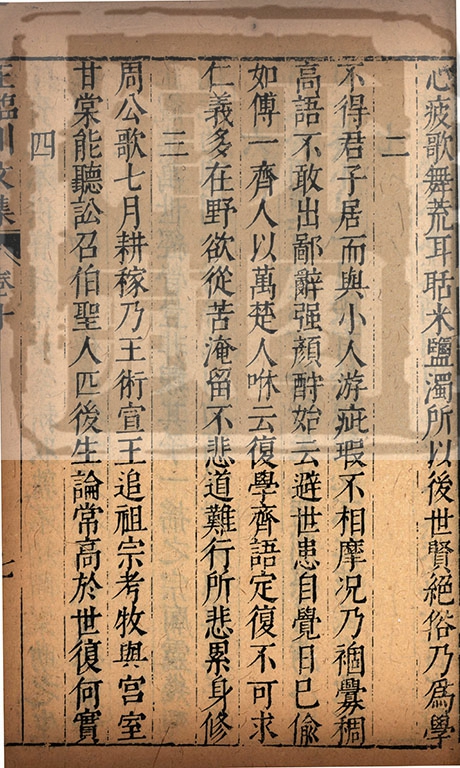 心疲歌舞荒耳聒米鹽濁所以後世賢絕俗乃爲學
二
不得君子居而與小人游疵瑕不相摩况乃禍釁稠
高語不敢出鄙辭强顏酬始云避世患自覺日已偷
如傅一齊人以萬楚人咻云復學齊語定復不可求
仁義多在野欲從苦淹留不悲道難行所悲累身修
三
周公歌七月耕稼乃王術宣王追祖宗考牧與宫室
甘棠能聽訟召伯聖人匹後生論常高於世復何實
四
王臨川文集 卷十 七